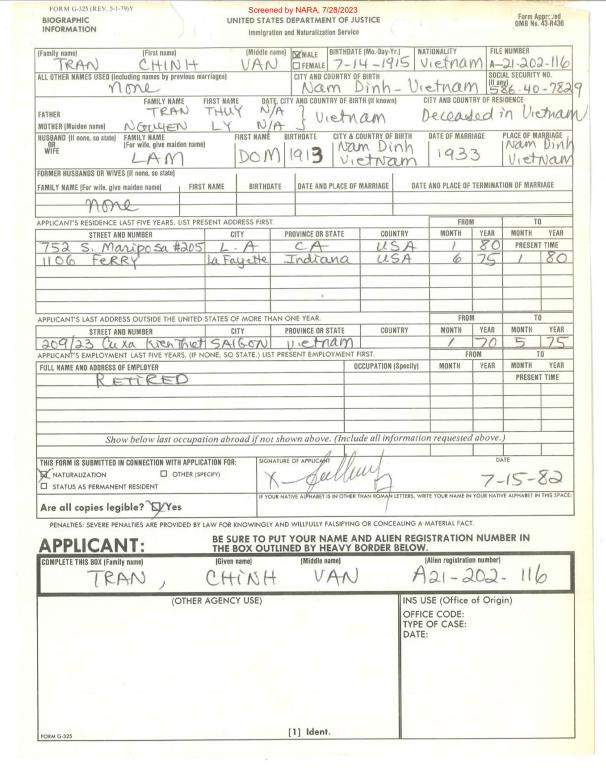 Screened by NARA, 7/28/2023
FORM G-325 (REV. 5-1-79)Y
BIOGRAPHIC INFORMATION
UNITED STATES DEPARTMENT OF JUSTICE
Immigration and Naturalization Service
Form Approved
OMB No. 43-R436
(Family name) (First name) (Middle name) MALE FEMALE BIRTHDATE (Mo.-Day-Yr.) NATIONALITY FILE NUMBER
TRAN CHINH VAN 7-14-1915 Vietnam A-21-202-116
ALL OTHER NAMES USED (Including names by previous marriages) CITY AND COUNTRY OF BIRTH SOCIAL SECURITY NO. (If any)
none Nam Dinh - Vietnam 586-40-7829
FAMILY NAME FIRST NAME DATE, CITY AND COUNTRY OF BIRTH (If known) CITY AND COUNTRY OF RESIDENCE
FATHER TRAN THUY N/A } Vietnam Deceased in Vietnam
MOTHER (Maiden name) NGUYEN LY N/A
HUSBAND (If none, so state) OR WIFE FAMILY NAME (For wife, give maiden name) FIRST NAME BIRTHDATE CITY & COUNTRY OF BIRTH DATE OF MARRIAGE PLACE OF MARRIAGE
LAM DOM 1913 Nam Dinh VIETNAM 1933 Nam Dinh VIETNAM
FORMER HUSBANDS OR WIVES (If none, so state)
FAMILY NAME (For wife, give maiden name) FIRST NAME BIRTHDATE DATE AND PLACE OF MARRIAGE DATE AND PLACE OF TERMINATION OF MARRIAGE
none
APPLICANT'S RESIDENCE LAST FIVE YEARS. LIST PRESENT ADDRESS FIRST. FROM TO
STREET AND NUMBER CITY PROVINCE OR STATE COUNTRY MONTH YEAR MONTH YEAR
752 S. Mariposa #205 L.A CA USA 1 80 PRESENT TIME
1106 FERRY La Fayette Indiana USA 6 75 1 80
APPLICANT'S LAST ADDRESS OUTSIDE THE UNITED STATES OF MORE THAN ONE YEAR. FROM TO
STREET AND NUMBER CITY PROVINCE OR STATE COUNTRY MONTH YEAR MONTH YEAR
209/23 Cuxa Kien Thiet SAIGON Vietnam 1 70 5 75
APPLICANT'S EMPLOYMENT LAST FIVE YEARS. (IF NONE, SO STATE.) LIST PRESENT EMPLOYMENT FIRST. FROM TO
FULL NAME AND ADDRESS OF EMPLOYER OCCUPATION (Specify) MONTH YEAR MONTH YEAR
RETIRED PRESENT TIME
Show below last occupation abroad if not shown above. (Include all information requested above.)
THIS FORM IS SUBMITTED IN CONNECTION WITH APPLICATION FOR: SIGNATURE OF APPLICANT DATE
NATURALIZATION OTHER (SPECIFY) X 7-15-82
STATUS AS PERMANENT RESIDENT
Are all copies legible? Yes IF YOUR NATIVE ALPHABET IS IN OTHER THAN ROMAN LETTERS, WRITE YOUR NAME IN YOUR NATIVE ALPHABET IN THIS SPACE:
PENALTIES: SEVERE PENALTIES ARE PROVIDED BY LAW FOR KNOWINGLY AND WILLFULLY FALSIFYING OR CONCEALING A MATERIAL FACT.
APPLICANT: BE SURE TO PUT YOUR NAME AND ALIEN REGISTRATION NUMBER IN THE BOX OUTLINED BY HEAVY BORDER BELOW.
COMPLETE THIS BOX (Family name) (Given name) (Middle name) (Alien registration number)
TRAN, CHINH VAN A21-202-116
(OTHER AGENCY USE) INS USE (Office of Origin)
OFFICE CODE:
TYPE OF CASE:
DATE:
FORM G-325 [1] Ident.